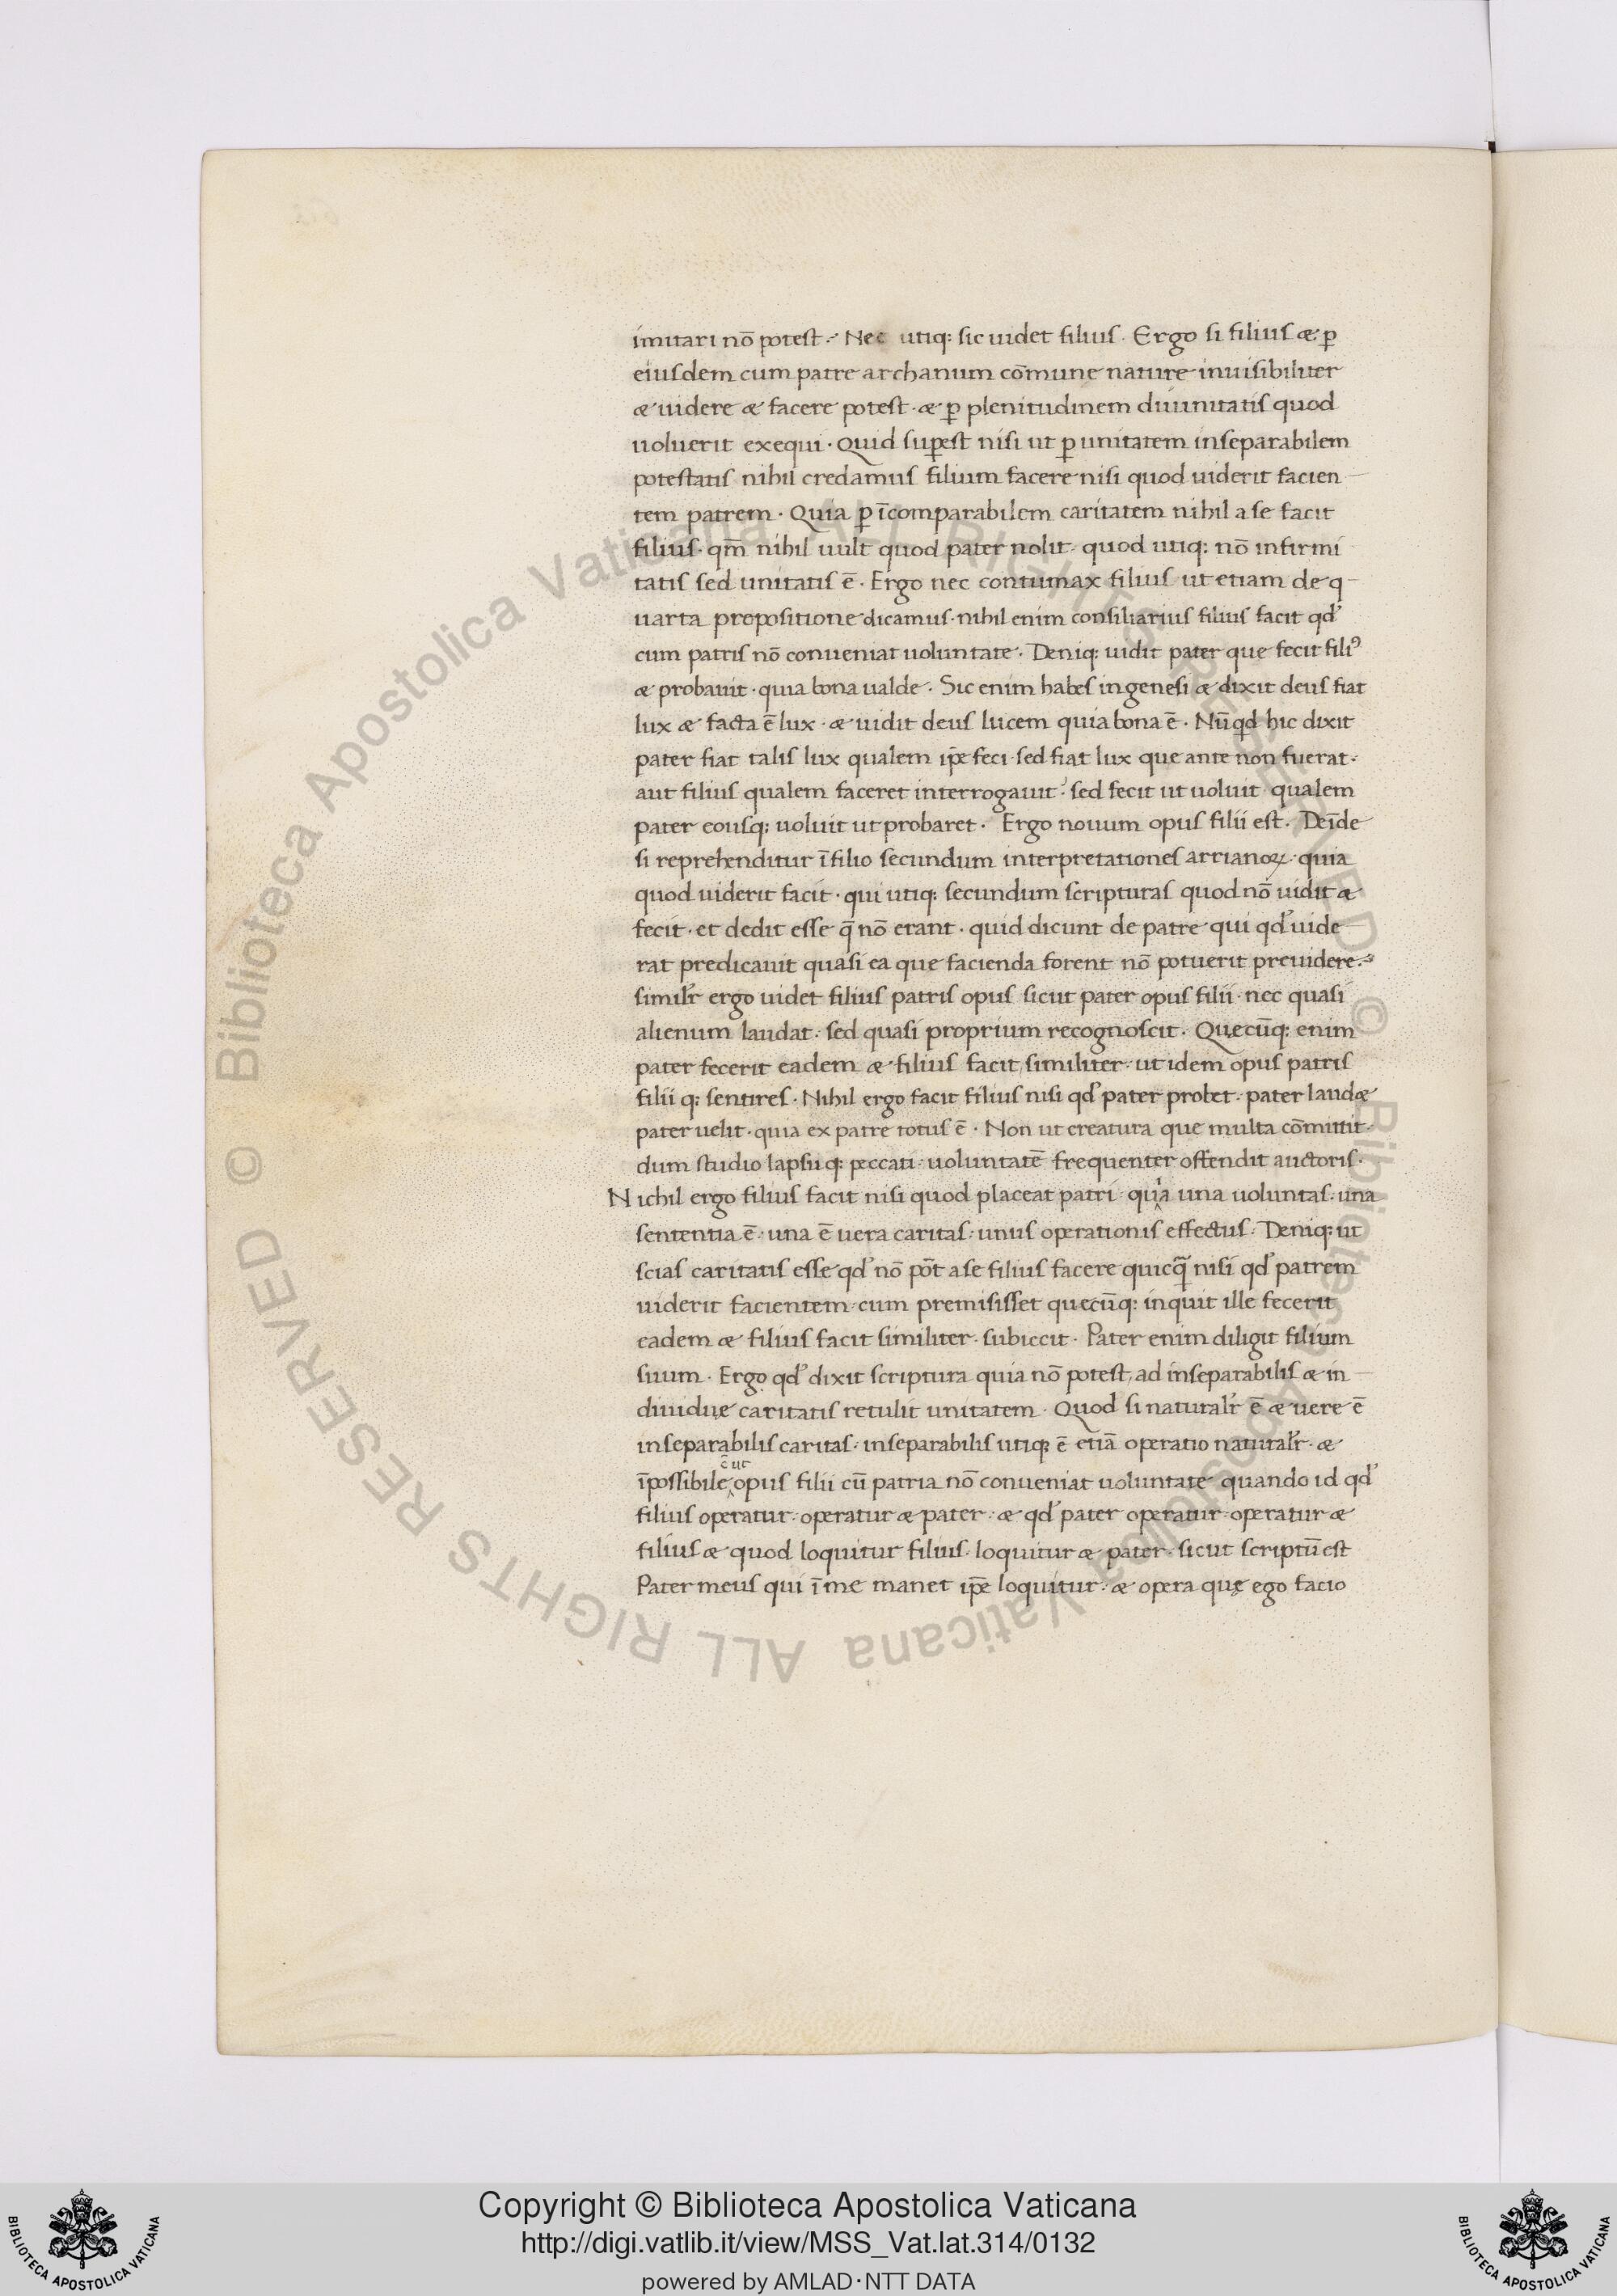 imitari nō potest. Nec utiq: sic uidet filius. Ergo si filius æ p̱
eiusdem cum patre archanum cōmune nature inuisibiliter
æ uidere æ facere potest. æ p̱ plenitudinem diuinitatis quod
uoluerit exequi. Quid sup̱est nisi ut p̱ unitatem inseparabilem
potestatis nihil credamus filium facere nisi quod uiderit facien
tem patrem. Quia p̱ īcomparabilem caritatem nihil a se facit
filius. qm̄ nihil uult quod pater nolit. quod utiq: nō infirmi
tatis sed unitatis ē. Ergo nec contumax filius ut etiam de q
uarta propositione dicamus. nihil enim consiliarius filius facit qd'
cum patris nō conueniat uoluntate. Deniq: uidit pater que fecit fili'
æ probauit. quia bona ualde. Sic enim habes in genesi æ dixit deus fiat
lux æ facta ē lux. æ uidit deus lucem quia bona ē. Nūqd hic dixit
pater fiat talis lux qualem ip̄e feci. sed fiat lux que ante non fuerat.
aut filius qualem faceret interrogauit. sed fecit ut uoluit qualem
pater eousq: uoluit ut probaret. Ergo nouum opus filii est. Deīde
si reprehenditur ī filio secundum interpretationes arrianoꝝ. quia
quod uiderit facit. qui utiq: secundum scripturas quod nō uidit æ
fecit. et dedit esse q̄ nō erant. quid dicunt de patre qui qd' uide
rat predicauit quasi ea que facienda forent nō potuerit preuidere.
simil'r ergo uidet filius patris opus sicut pater opus filii. nec quasi
alienum laudat. sed quasi proprium recognoscit. Quęcūq: enim
pater fecerit eadem æ filius facit, similiter. ut idem opus patris
filii q: sentires. Nihil ergo facit filius nisi qd' pater probet. pater laudæ
pater uelit. quia ex patre totus ē. Non ut creatura que multa cōmittit.
dum studio lapsuq: peccati. uoluntatē frequenter offendit auctoris.
Nichil ergo filius facit nisi quod placeat patri. quia una uoluntas. una
sententia ē. una ē uera caritas. unus operationis effectus. Deniq: ut
scias caritatis esse qd' nō pōt a se filius facere quicq̄ nisi qd' patrem
uiderit facientem. cum premisisset quęcūq: inquit ille fecerit
eadem æ filius facit similiter. subiecit. Pater enim diligit filium
suum. Ergo qd' dixit scriptura quia nō potest, ad inseparabilis æ in
diuiduę caritatis retulit unitatem. Quod si natural'r ē æ uere ē
inseparabilis caritas. inseparabilis utiq: ē etiā operatio natural'r. æ
ē ut
īpossibile opus filii cū patria nō conueniat uoluntate quando id qd'
filius operatur. operatur æ pater. æ qd' pater operatur. operatur æ
filius æ quod loquitur filius. loquitur æ pater. sicut scriptū est
Pater meus qui ī me manet ip̄e loquitur. æ opera quę ego facio
© Biblioteca Apostolica Vaticana ALL RIGHTS RESERVED © Biblioteca Apostolica Vaticana ALL RIGHTS RESERVED
Copyright © Biblioteca Apostolica Vaticana
http://digi.vatlib.it/view/MSS_Vat.lat.314/0132
powered by AMLAD·NTT DATA
BIBLIOTECA APOSTOLICA VATICANA
BIBLIOTECA APOSTOLICA VATICANA